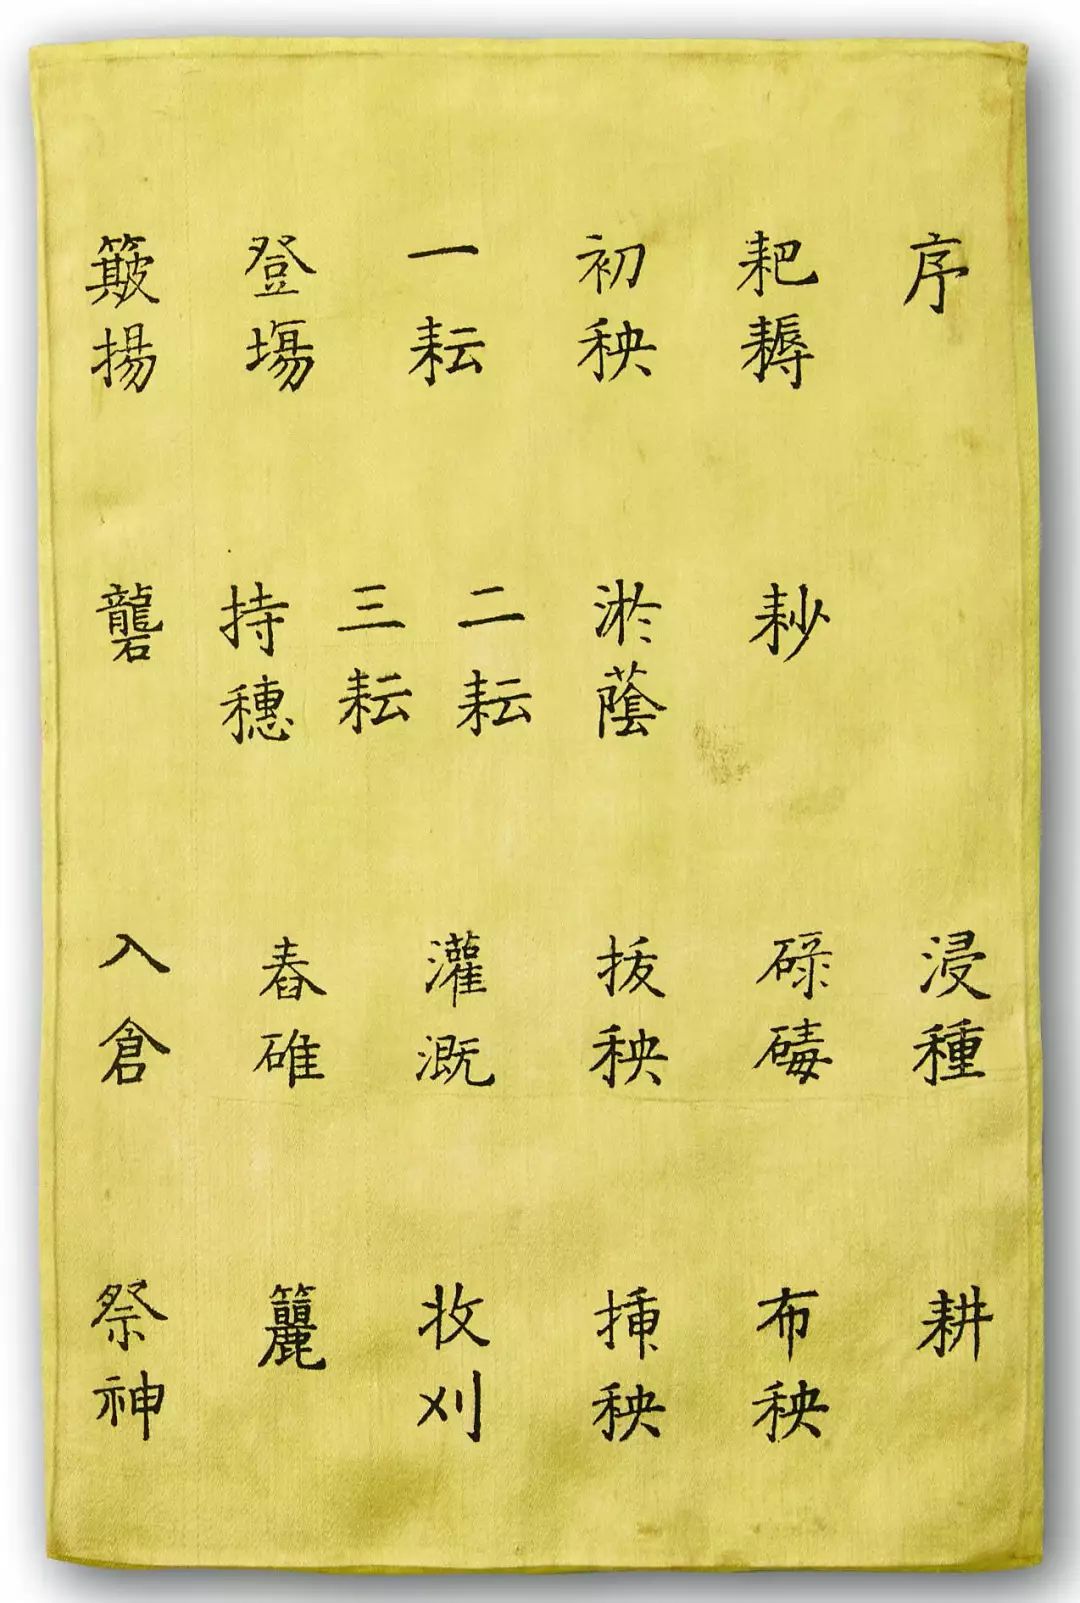 序
浸種
耕
耙耨
耖
碌碡
布秧
初秧
淤蔭
拔秧
揷秧
一耘
二耘
三耘
灌溉
收刈
登塲
持穗
舂碓
籭
簸揚
礱
入倉
祭神